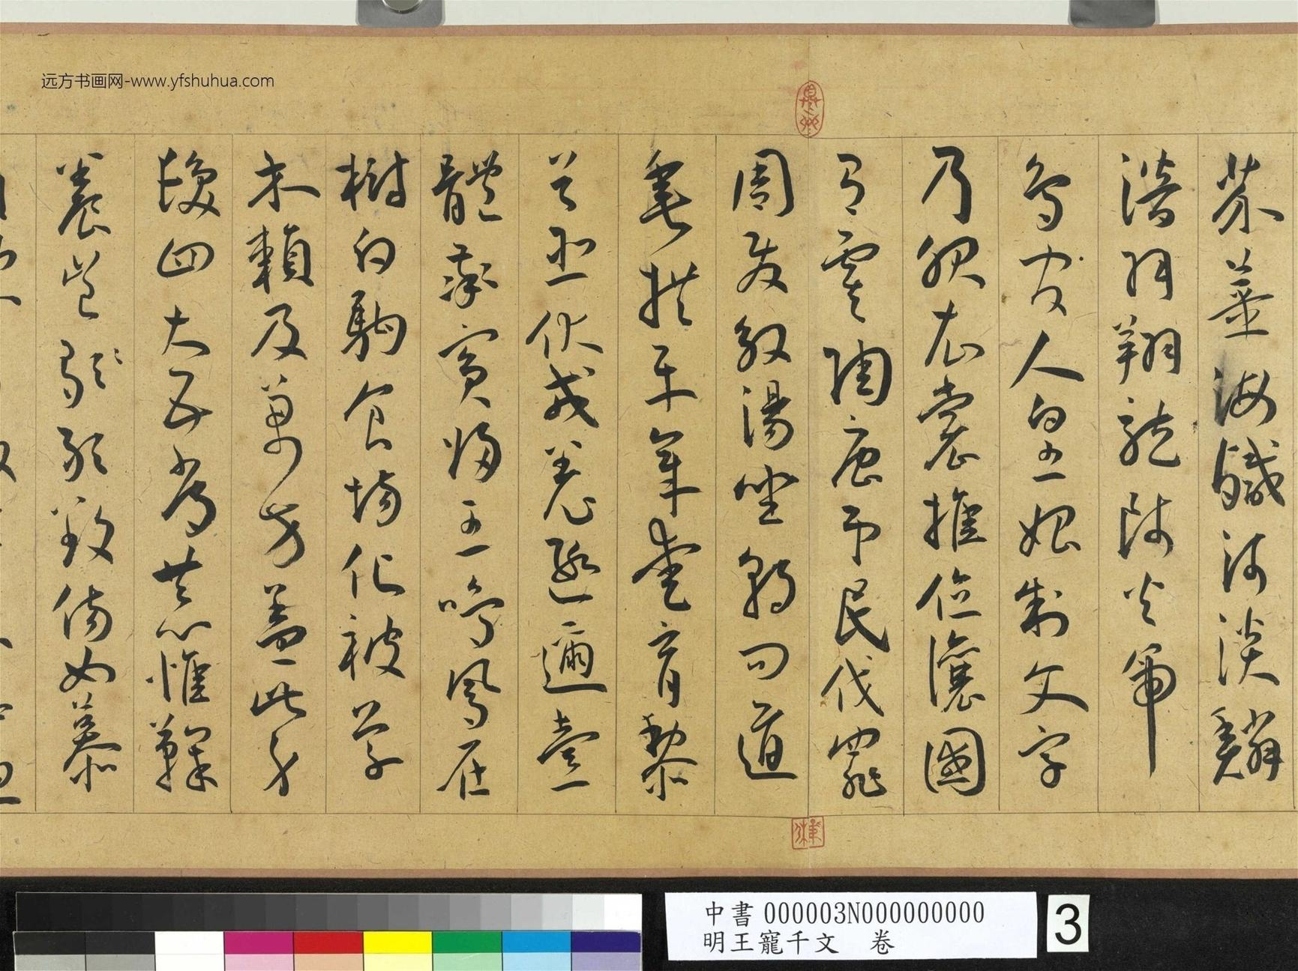 远方书画网-www.yfshuhua.com
芥薑海鹹河淡鱗
潛羽翔龍師火帝
鳥官人皇始制文字
乃服衣裳推位讓國
有虞陶唐弔民伐罪
周發殷湯坐朝問道
垂拱平章愛育黎
首臣伏戎羌遐邇壹
體率賓歸王鳴鳳在
樹白駒食場化被草
木賴及萬方蓋此身
髮四大五常恭惟鞠
養豈敢毀傷女慕
中書 000003N000000000
明王寵千文 卷
3